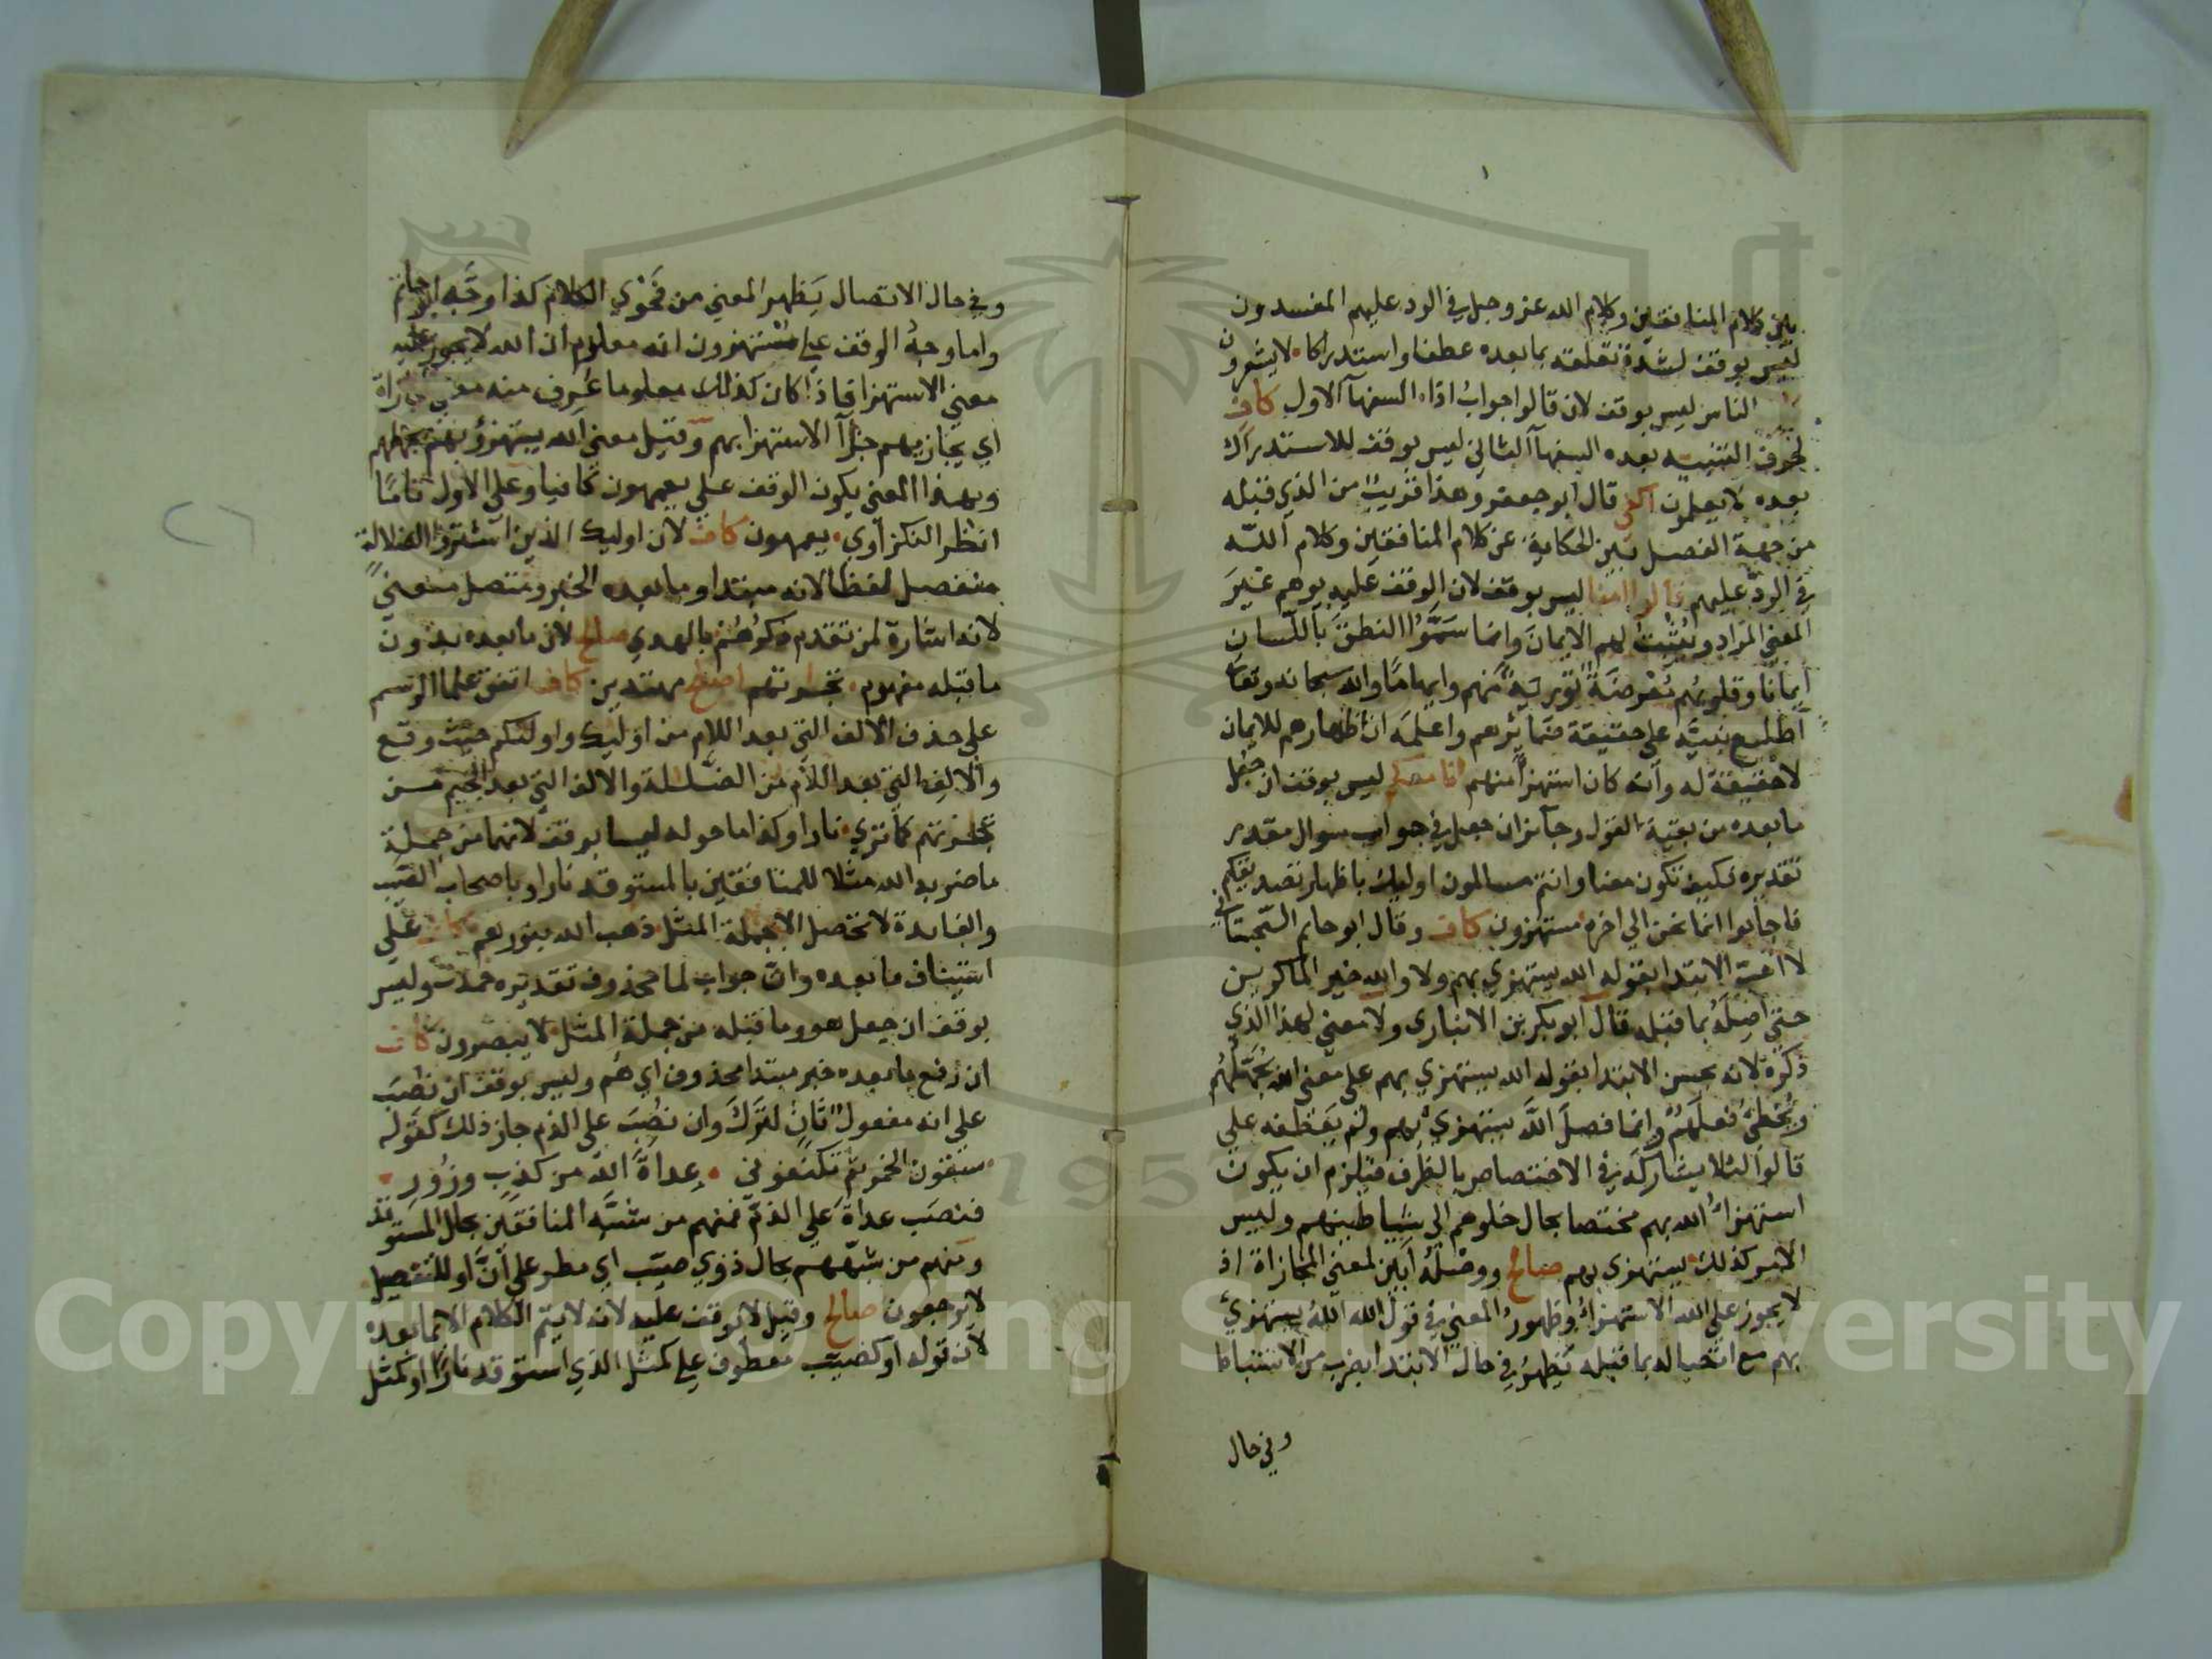 بين كلام المنافقين وكلام الله عز وجل في الرد عليهم المفسدون
ليس بوقف لشدة تعلقه بما بعده عطفا واستدراكا لا يشعرون
الناس ليس بوقف لان قالوا جواب اذا السفهآ الاول كاف
لحرف التنبيه بعده السفهآ الثاني ليس بوقف للاستدراك
بعده لا يعلمون اكفى قال ابو جعفر وهذا قريب من الذي قبله
من جهة الفصل بين الحكاية عن كلام المنافقين وكلام الله
في الرد عليهم قالوا امنا ليس بوقف لان الوقف عليه يوهم غير
المعني المراد ويثبت لهم الايمان وانما سموا النطق باللسان
ايمانا وقلوبهم معرضة تورية منهم وايهاما والله سبحانه وتعالي
اطلع نبيه علي حقيقة ضمائرهم واعلمه ان اظهارهم للايمان
لا حقيقة له وانه كان استهزأ منهم انا معكم ليس بوقف ان جعل
ما بعده من بقية القول وجائز ان جعل في جواب سوال مقدر
تقديره كيف تكون معنا وانتم مسالمون اوليك باظهار تصديقكم
فاجابوا انما نحن الي اخره مستهزون كاف وقال ابو حاتم السجستاني
لا احب الابتدا بقوله الله يستهزي بهم ولا والله خير الماكرين
حتي اصله بما قبله قال ابو بكر بن الانباري ولا معني لهذا الذي
ذكره لانه يحسن الابتدا بقوله الله يستهزي بهم علي معني الله يجهلهم
ويخطي فعلهم وانما فصل الله يستهزي بهم ولم يعطفه علي
قالوا لئلا يشاركه في الاختصاص بالظرف فيلزم ان يكون
استهزاء الله بهم مختصا بحال خلوهم الي شياطينهم وليس
الامر كذلك يستهزي بهم صالح ووصله ابين لمعني المجازاة اذ
لا يجوز علي الله الاستهزاء وظهور المعني في قول الله الله يستهزي
بهم مع اتصاله بما قبله يظهر في حال الابتدا بضرب من الاستنباط
وفي حال
وفي حال الاتصال يظهر المعني من فحوي الكلام كذا وجه ابو حاتم
واما وجه الوقف علي مستهزون انه معلوم ان الله لا يجوز عليه
معني الاستهزا فاذا كان كذلك معلوما عرف منه معني المجازاة
اي يجازيهم جزآ الاستهزا بهم وقيل معني الله يستهزؤ بهم يجهلهم
وبهذا المعني يكون الوقف علي يعمهون كافيا وعلي الاول تاما
انظر النكزاوي يعمهون كاف لان اوليك الذين اشتروا الضلالة
منفصل لفظا لانه مبتدا وما بعده الخبر ومتصل معني
لانه اشارة لمن تقدم ذكرهم بالهدي صالح لان ما بعده بدون
ما قبله مفهوم تجارتهم اصلح مهتدين كاف اتفق علما الرسم
علي حذف الالف التي بعد اللام من اوليك واوليكم حيث وقع
والالف التي بعد اللام من الضللة والالف التي بعد الجيم من
تجرتهم كما تري نارا وكذا ما حوله ليسا بوقف لانهما من جملة
ما ضربه الله مثلا للمنافقين بالمستوقد نارا وباصحاب الصيب
والفايدة لا تحصل الا بجملة المثل ذهب الله بنورهم كاف علي
استيناف ما بعده وان جواب لما محذوف تقديره خمدت وليس
بوقف ان جعل هو وما قبله من جملة المثل لا يبصرون كاف
ان رفع ما بعده خبر مبتدا محذوف اي هم وليس بوقف ان نصب
علي انه مفعول ثان لترك وان نصب علي الذم جاز ذلك كقوله
سقوني الخمر ثم تكنفوني عداة الله من كذب وزور
فنصب عداة علي الذم فمنهم من شبه المنافقين بحال المستوقد
ومنهم من شبههم بحال ذوي صيب اي مطر علي ان او للتفصيل
لا يرجعون صالح وقيل لا يوقف عليه لانه لا يتم الكلام الا بما بعده
لان قوله او كصيب معطوف علي كمثل الذي استوقد نارا او كمثل
٢٦
1957
Copyright © King Saud University